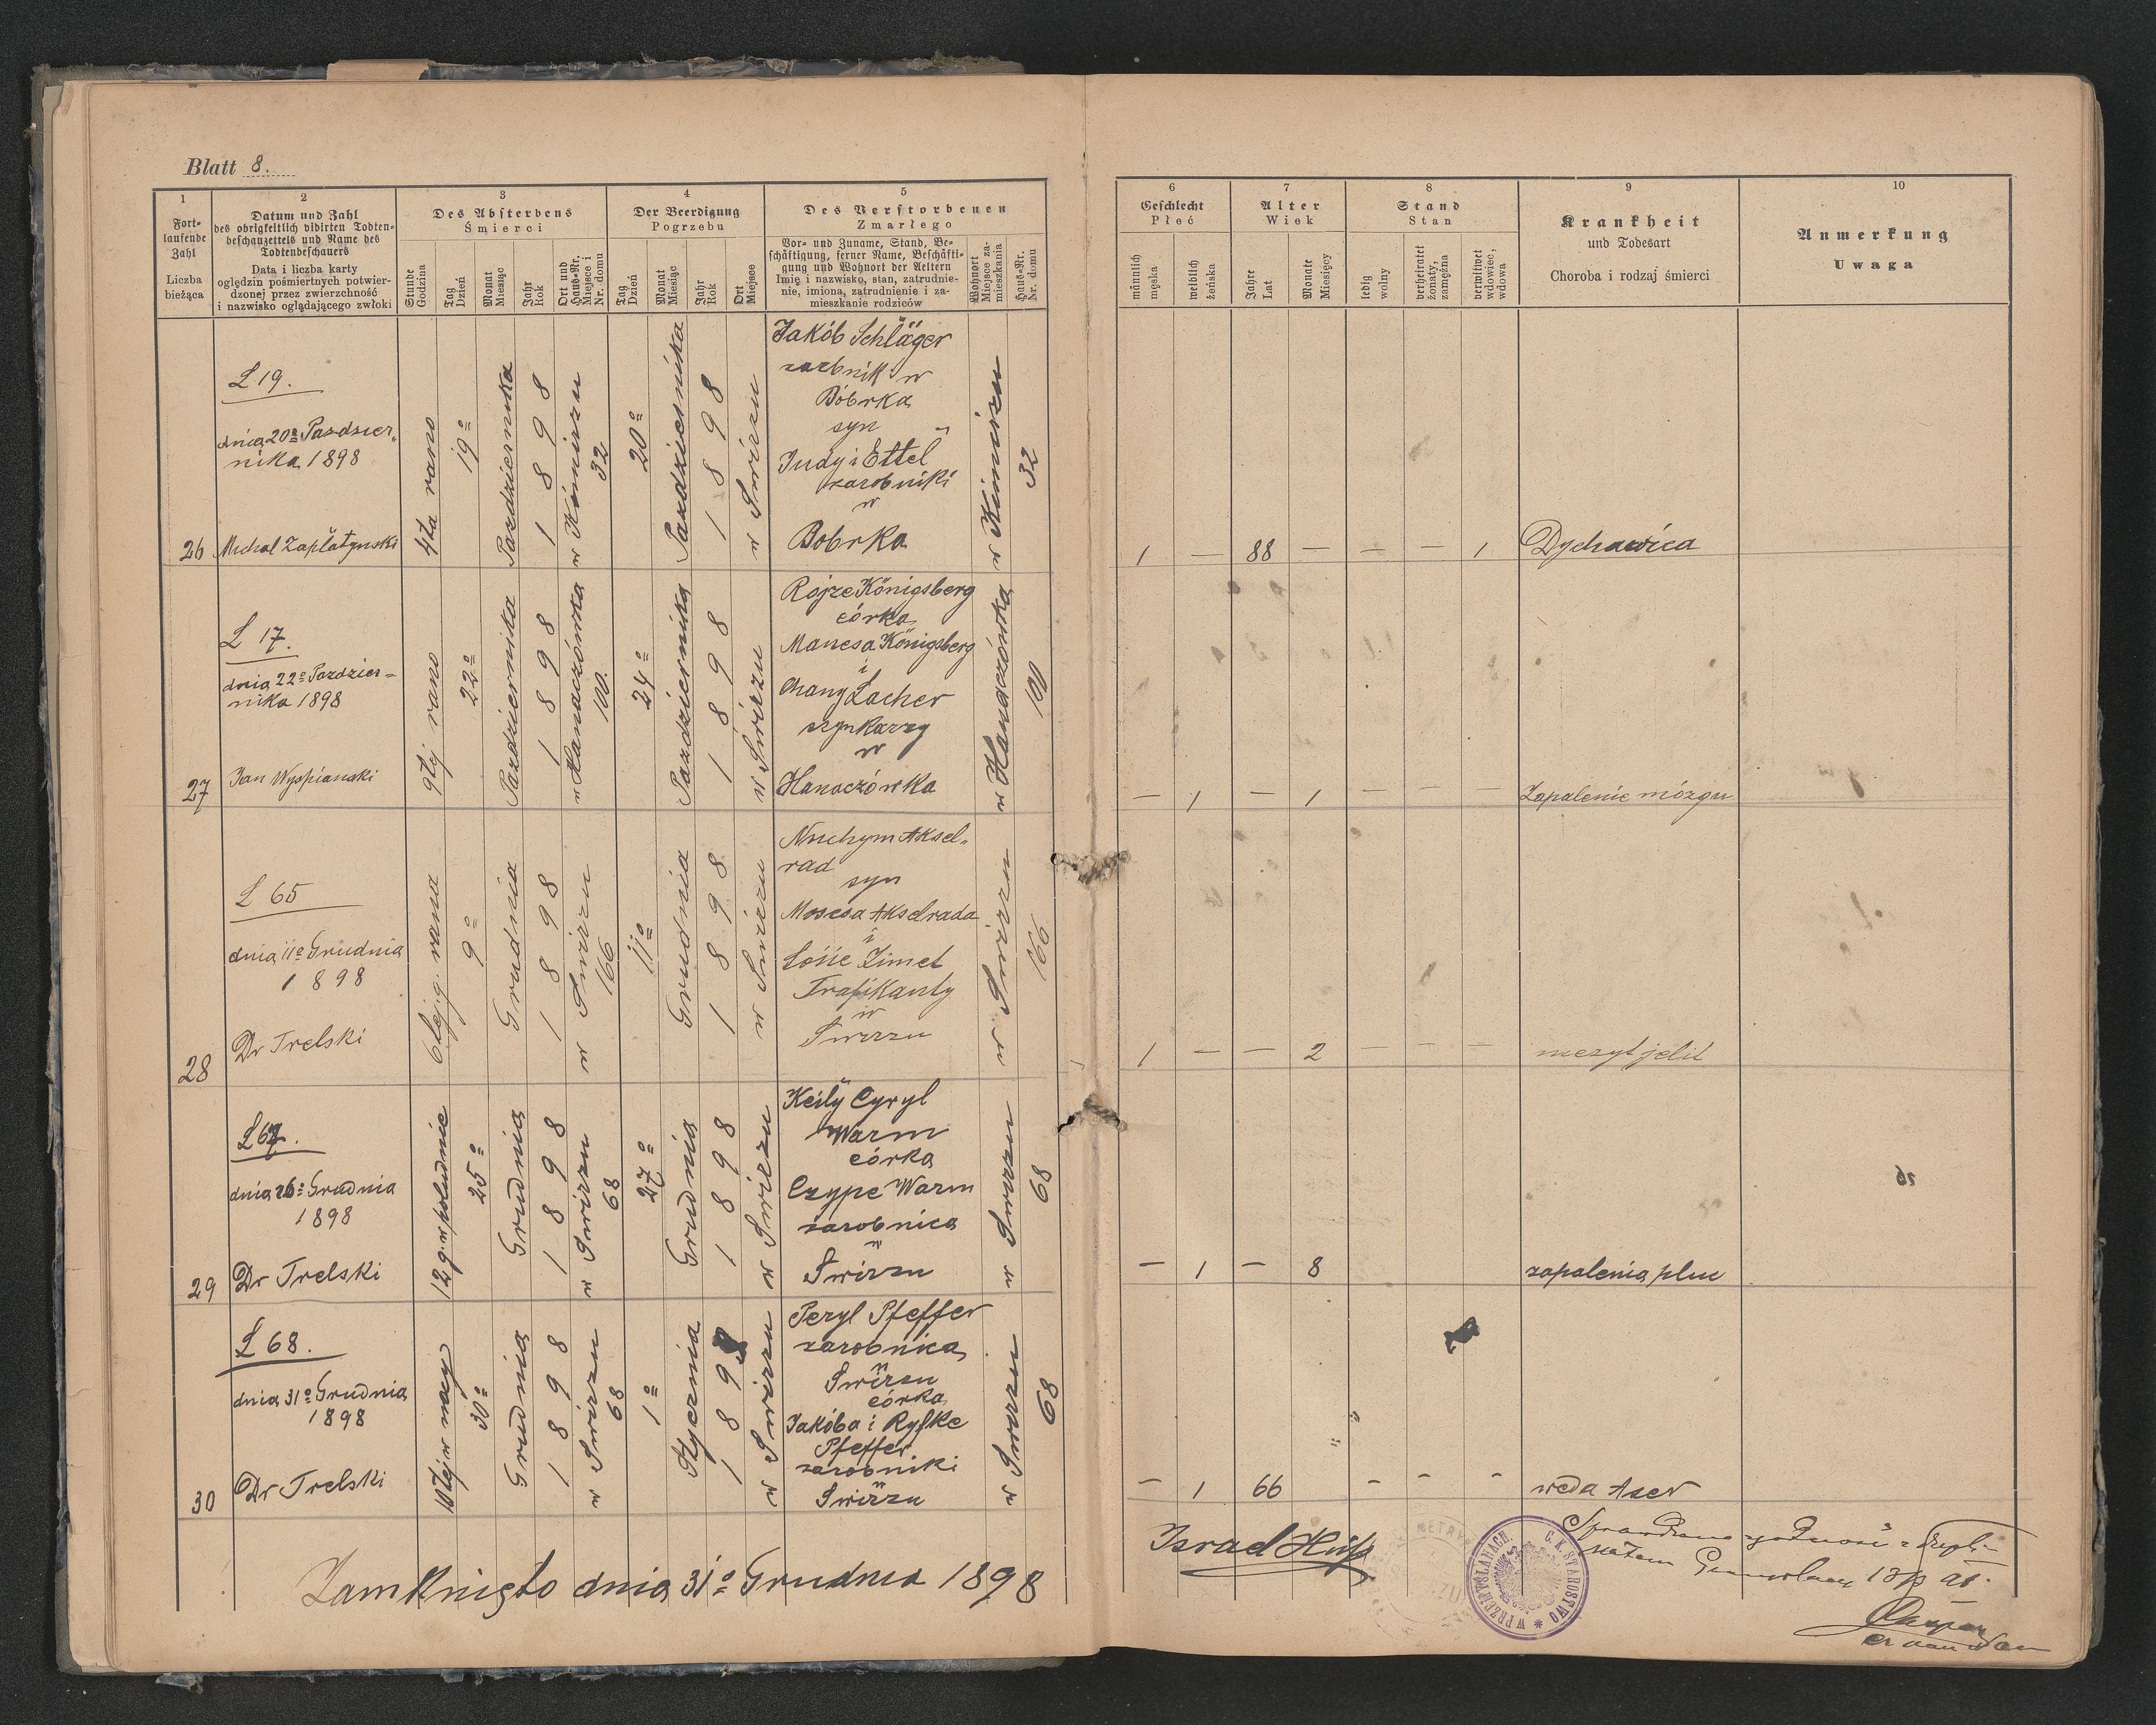 Blatt 8.
1
Fort-
laufende
Zahl
Liczba
bieżąca
2
Datum und Zahl
des obrigkeitlich vidirten Todten-
beschauzettels und Name des
Todtenbeschauers
Data i liczba karty
oględzin pośmiertnych potwier-
dzonej przez zwierzchność
i nazwisko oglądającego zwłoki
3
Des Absterbens
Śmierci
Stunde
Godzina
Tag
Dzień
Monat
Miesiąc
Jahr
Rok
Ort und
Haus-Nr.
Miejsce i
Nr. domu
4
Der Beerdigung
Pogrzebu
Tag
Dzień
Monat
Miesiąc
Jahr
Rok
Ort
Miejsce
5
Des Verstorbenen
Zmarłego
Vor- und Zuname, Stand, Be-
schäftigung, ferner Name, Beschäfti-
gung und Wohnort der Aeltern
Imię i nazwisko, stan, zatrudnie-
nie, imiona, zatrudnienie i za-
mieszkanie rodziców
Wohnort
Miejsce za-
mieszkania
Haus-Nr.
Nr. domu
6
Geschlecht
Płeć
männlich
męska
weiblich
żeńska
7
Alter
Wiek
Jahre
Lat
Monate
Miesięcy
8
Stand
Stan
ledig
wolny
verheiratet
żonaty,
zamężna
verwitwet
wdowiec,
wdowa
9
Krankheit
und Todesart
Choroba i rodzaj śmierci
10
Anmerkung
Uwaga
26
L 19.
dnia 20º Pazdzier„
nika 1898
Michal Zaplatynski
4ta rano
19º
Pazdziernika
1 8 9 8
w Kimirzu
32
20º
Pazdziernika
1 8 9 8
w Swirzu
Jakób Schläger
zarbnik w
Bóbrka
syn
Judy i Ettel
zarobniki
w
Bobrka
w Kimirzu
32
1 — 88 — — — 1
Dychawica
27
L 17.
dnia 22º Pazdzier=
nika 1898
Jan Wyspianski
9tej rano
22º
Pazdziernika
1 8 9 8
w Hanaczówka
100.
24º
Pazdziernika
1 8 9 8
w Swirzu
Rojze Königsberg
córka
Manesa Königsberg
i
Chany Lacher
szynkarzy
w
Hanaczówka
w Hanaczówka
100
— 1 — 1 — — —
Zapalenie mózgu
28
L 65
dnia 11º Grudnia
1 8 9 8
Dr Trelski
6tej g. rana
9º
Grudnia
1 8 9 8
w Swirzu
166
11º
Grudnia
1 8 9 8
w Swirzu
Nuchym Aksel„
rad
syn
Mosesa Akselrada
i
Zimet
Trafikanty
w
Swirzu
w Swirzu
166
1 — — 2 — — —
niezyt jelit
29
L 67.
dnia 26º Grudnia
1898
Dr Trelski
12 g. w południe
25º
Grudnia
1 8 9 8
w Swirzu
68
27º
Grudnia
1 8 9 8
w Swirzu
Keily Cyryl
Warm
córka
Czype Warm
zarobnica
w
Swirzu
w Swirzu
68
— 1 — 8
zapalenia pluc
30
L 68.
dnia 31º Grudnia
1898
Dr Trelski
10tej w nocy
30º
Grudnia
1 8 9 8
w Swirzu
68
1º
Stycznia
1 8 9
w Swirzu
Peryl Pfeffer
zarobnica
w
Swirzu
córka
Jakóba i Ryfke
Pfeffer
zarobniki
w
Swirzu
w Swirzu
68
— 1 66 — — —
Zamknięto dnia 31º Grudnia 1898
Israel
C. K. STAROSTWO
W PRZEMYŚLANACH